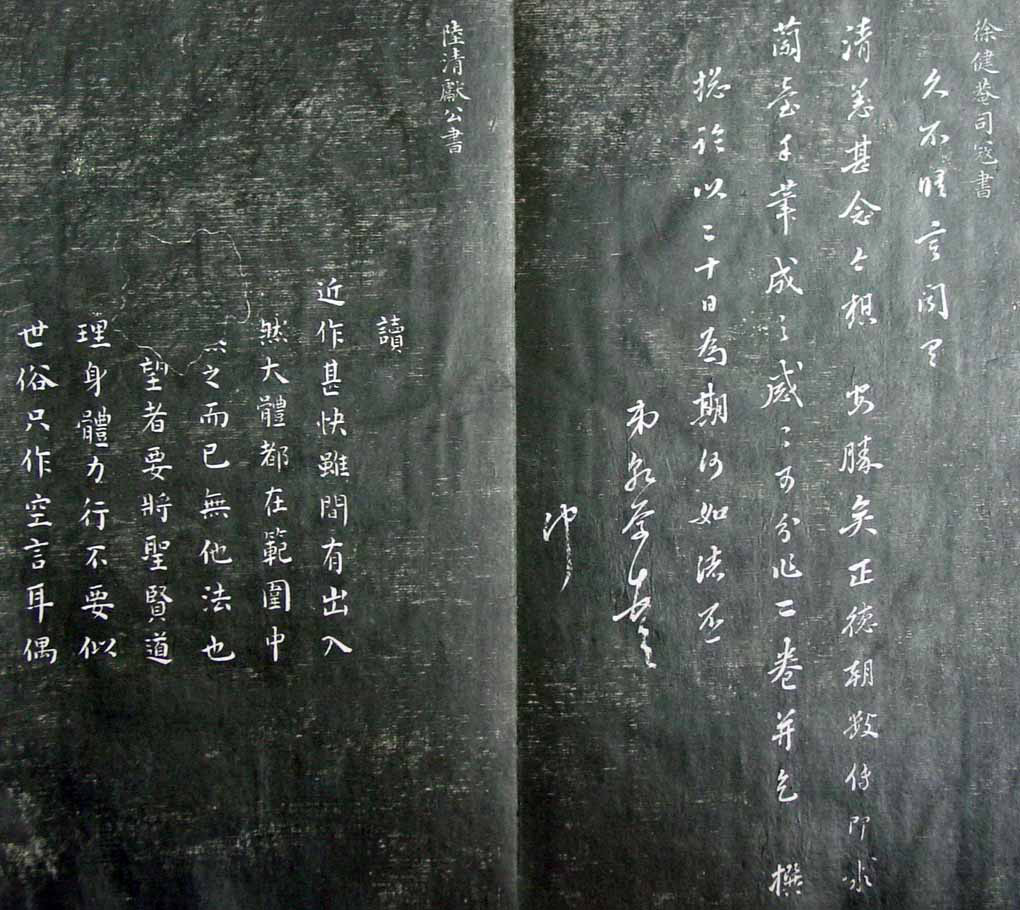 徐健菴司寇書
久不晤言聞
清恙甚念今想 安勝矣正德朝數傳即求
蘭臺手筆成之感二可分作二卷并乞 撰
總論以二十日為期何如諸不
弟乾學
冲
陸清獻公書
讀
近作甚快雖間有出入
然大體都在範圍中
之而已無他法也
望者要將聖賢道
理身體力行不要似
世俗只作空言耳偶